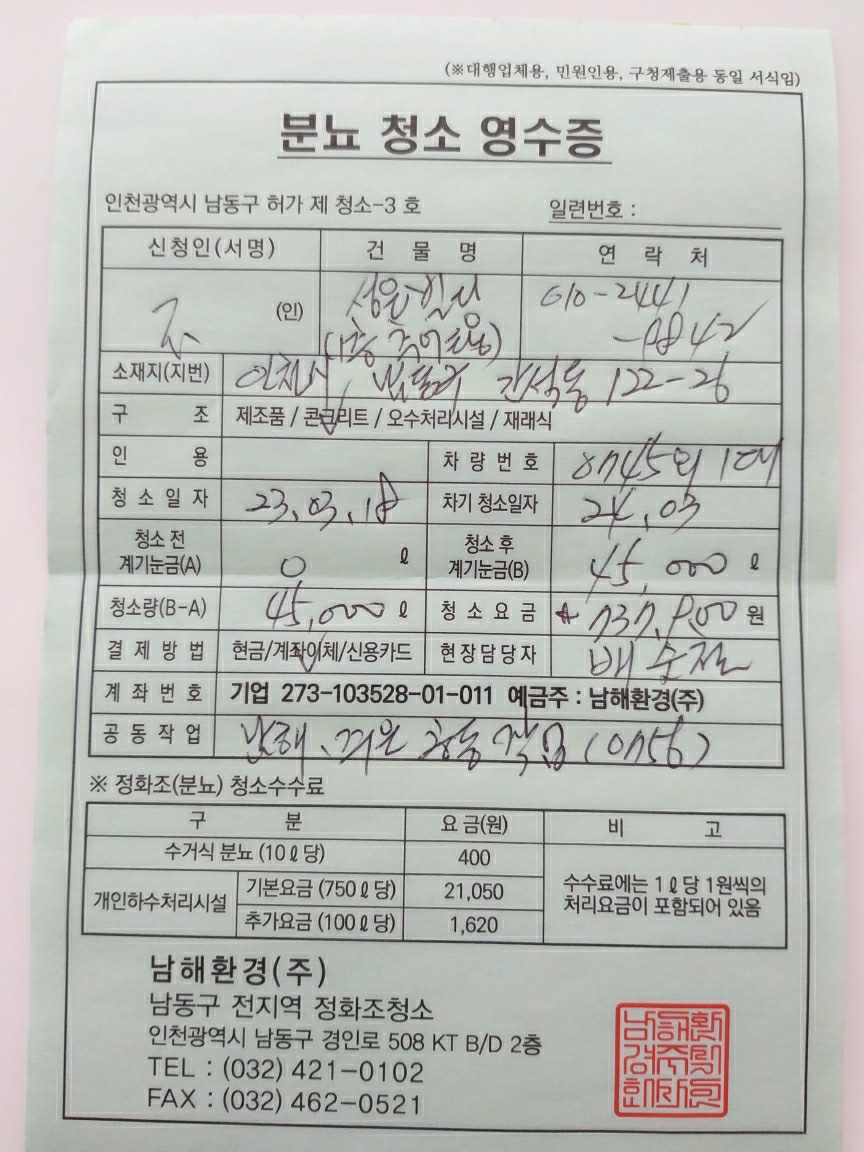 (※대행업체용, 민원인용, 구청제출용 동일 서식임)
분뇨 청소 영수증
인천광역시 남동구 허가 제 청소-3 호
일련번호 :
신청인(서명) 건물명 연락처
(인) 010-2441
소재지(지번) 간석동 122-26
구조 제조품 / 콘크리트 / 오수처리시설 / 재래식
인용 차량번호 8745외 1대
청소일자 23.03.18 차기 청소일자 24.03
청소 전 계기눈금(A) 0 ℓ 청소 후 계기눈금(B) 45,000 ℓ
청소량(B-A) 45,000 ℓ 청소요금 원
결제방법 현금/계좌이체/신용카드 현장담당자
계좌번호 기업 273-103528-01-011 예금주 : 남해환경(주)
공동작업 남해,
※ 정화조(분뇨) 청소수수료
구분 요금(원) 비고
수거식 분뇨 (10ℓ당) 400
개인하수처리시설 기본요금 (750ℓ당) 21,050
추가요금 (100ℓ당) 1,620
수수료에는 1ℓ당 1원씩의
처리요금이 포함되어 있음
남해환경(주)
남동구 전지역 정화조청소
인천광역시 남동구 경인로 508 KT B/D 2층
TEL : (032) 421-0102
FAX : (032) 462-0521